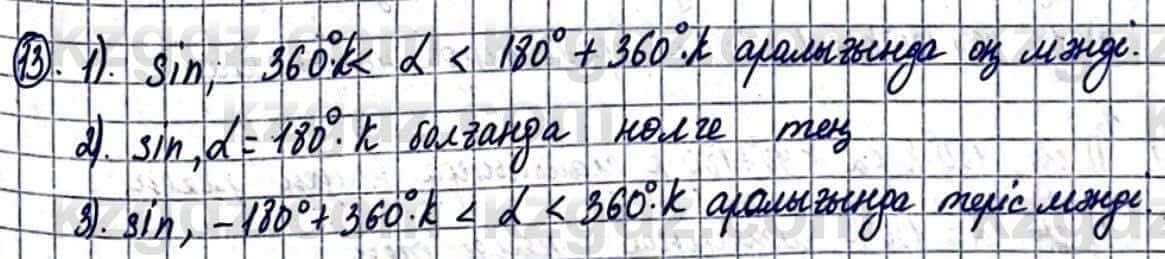 13. 1). sin, 360°·k < α < 180° + 360°·k аралығында оң мәнді.
2). sin, α = 180°·k болғанда нөлге тең
3). sin, -180° + 360°·k < α < 360°·k аралығында теріс мәнді.